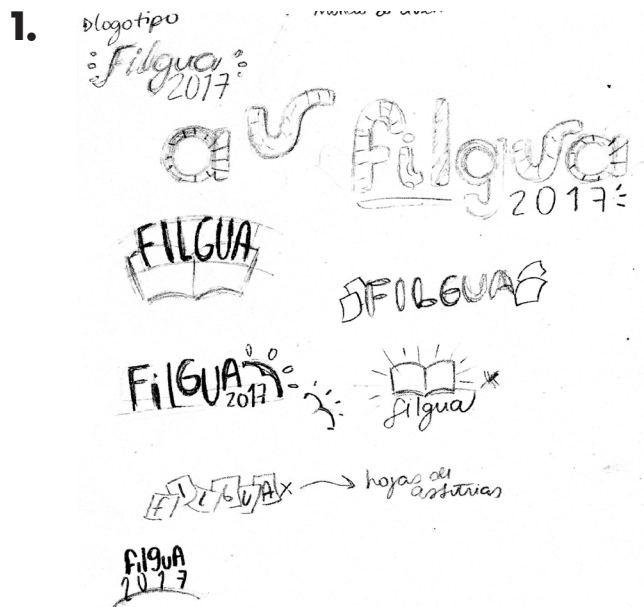 1.
Dlogotipo
Filgua
2017
a u filgua
2017
FILGUA
FILGUA
FilGUA
2017
filgua
FILGUA x
hojas de
FilguA
2017